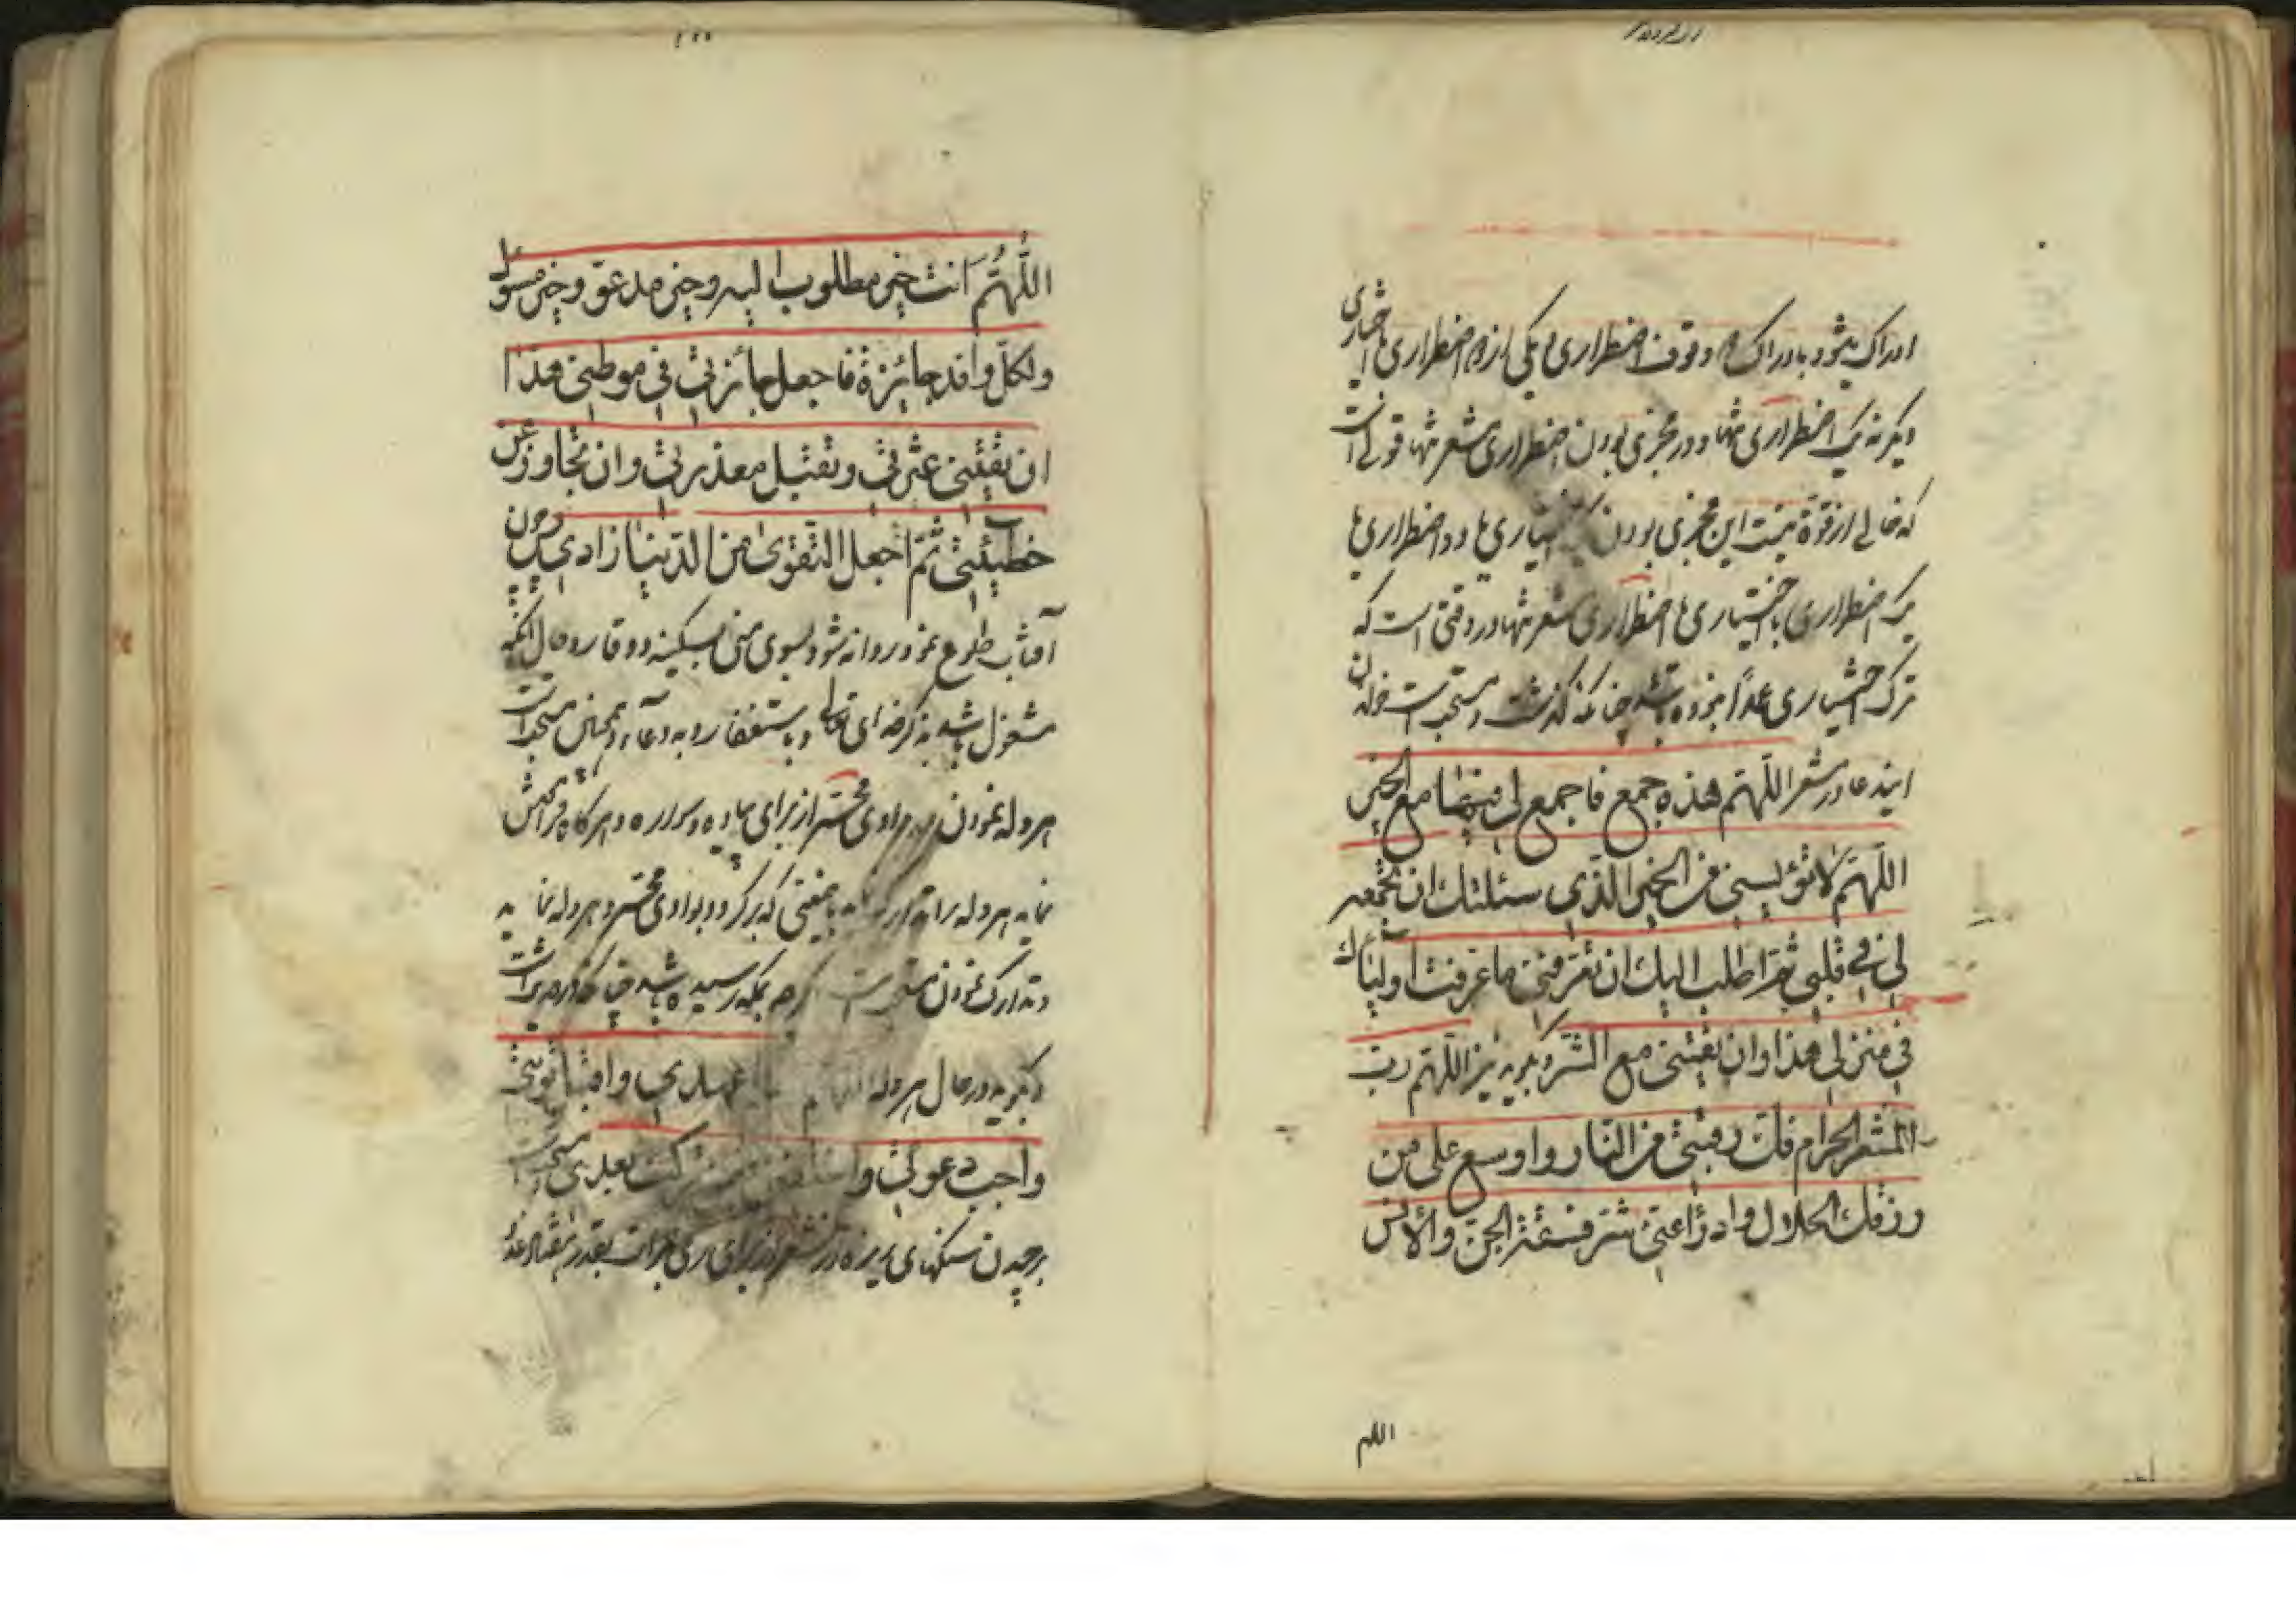 ادراک میشود بادراک دو وقوف اضطراری یا یکی از دو اضطراری با اختیاری
دیگر نه یک اضطراری تنها و در مجزی بودن اضطراری مشعر تنها قولی است
که خالی از قوة نیست این مجزی بودن اختیاری ها و دو اضطراری ها
یک اضطراری با اختیاری یا اضطراری مشعر تنها در وقتی است که
ترک اختیاری عمداً ننموده باشد چنانکه گذشت و مستحب است خواندن
ایندعا در مشعر اللّهمّ هذه جمع فاجمع لی فیها جوامع الخیر
اللّهمّ لا تؤیسنی من الخیر الّذی سئلتك ان تجمعه
لی فی قلبی ثمّ اطلب الیك ان تعرّفنی ما عرّفت اولیائك
فی منزلی هذا وان تقینی مع الشّر و بگوید نیز اللّهمّ ربّ
المشعر الحرام فكّ رقبتی من النّار و اوسع علی من
رزقك الحلال وادرأ عنّی شرّ فسقة الجنّ والأنس
اللهم
اللّهُمّ اَنت خیر مطلوب الیه وخیر مدعوّ وخیر مسؤل
ولکلّ وافد جائزة فاجعل جائزتی فی موطنی هذا
ان تقیلنی عثرتی وتقبل معذرتی وان تجاوز عن
خطیئتی ثمّ اجعل التّقوی من الدّنیا زادی و چون
آفتاب طلوع نمود روانه شود بسوی منی بسکینه و وقار و حال آنکه
مشغول باشد بذکر خدای تعالی و باستغفار و به دعآء و همچنین مستحب است
هروله نمودن در وادی محسّر از برای پیاده و سواره و هرگاه فراموش
نماید هروله را تدارک نماید باینمعنی که برگردد بوادی محسّر و هروله نماید
و تدارک نمودن مستحب است اگرچه بمکه رسیده باشد چنانکه
و بگوید در حال هروله اللّهمّ سلّم عهدی واقبل توبتی
واجب دعوتی و اخلفنی فیمن ترکت بعدی
برچیدن سنگهای ریزه در مشعر از برای رمی جمرات بقدر هفتاد عدد